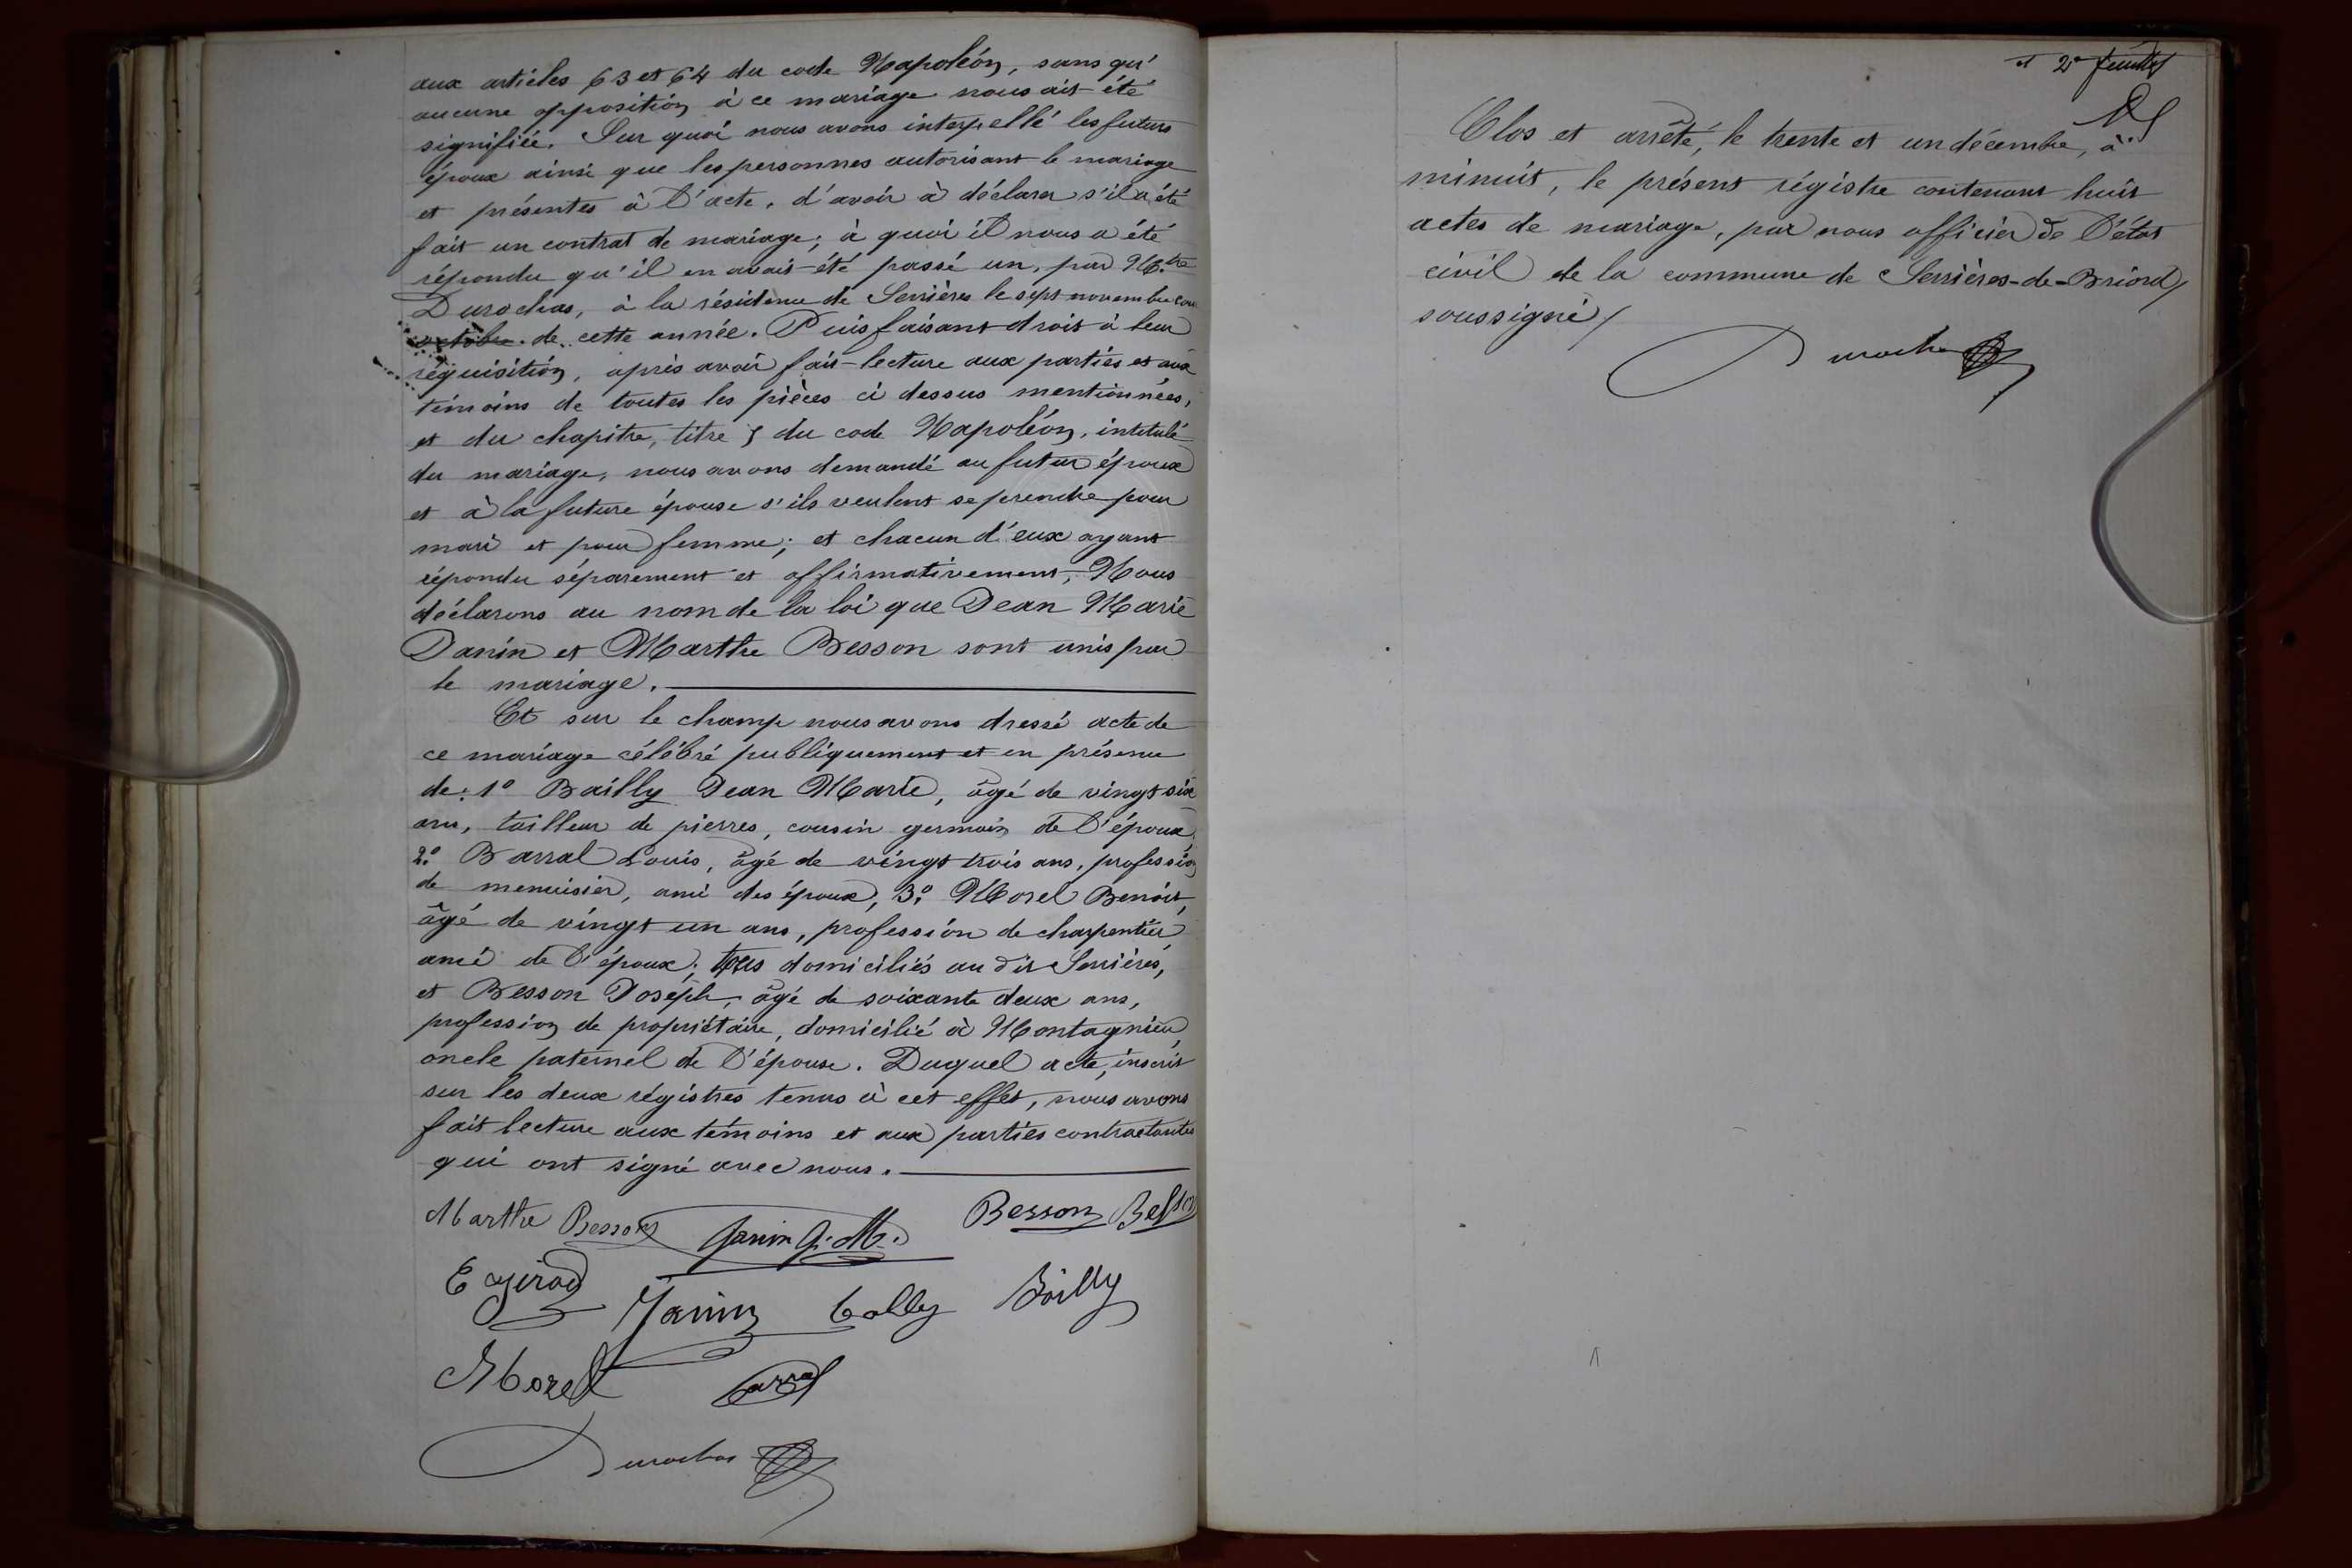 aux articles 63 et 64 du code Napoléon, sans qu'
aucune opposition à ce mariage nous ait été
signifiée. Sur quoi nous avons interpellé les futurs
époux ainsi que les personnes autorisant le mariage
et présentes à l'acte, d'avoir à déclarer s'il a été
fait un contrat de mariage; à quoi il nous a été
répondu qu'il en avait été passé un, par M.tre
Durochas, à la résidence de Serrières le sept novembre
octobre de cette année. Puis faisant droit à leur
réquisition, après avoir fait lecture aux parties et aux
témoins de toutes les pièces ci dessus mentionnées,
et du chapitre, titre 5 du code Napoléon, intitulé
du mariage, nous avons demandé au futur époux
et à la future épouse s'ils veulent se prendre pour
mari et pour femme; et chacun d'eux ayant
répondu séparement et affirmativement, Nous
déclarons au nom de la loi que Jean Marie
Janin et Marthe Besson sont unis par
le mariage.
Et sur le champ nous avons dressé acte de
ce mariage célébré publiquement et en présence
de: 1° Bailly Jean Marie, âgé de vingt six
ans, tailleur de pierres, cousin germain de l'époux,
2° Barral Louis, âgé de vingt trois ans, profession
de menuisier, ami des époux, 3° Morel Benoit,
âgé de vingt un ans, profession de charpentier
ami de l'époux; tous domiciliés au dit Serrières,
et Besson Joseph, âgé de soixante deux ans,
profession de propriétaire, domicilié à Montagnieu,
oncle paternel de l'épouse. Duquel acte, inscrit
sur les deux régistres tenus à cet effet, nous avons
fait lecture aux témoins et aux parties contractantes
qui ont signé avec nous.
Marthe Besson Janin J. M. Besson Besson
E Girod Janin Bailly
Morel Barral
Durochas
et 2e feuillet
Clos et arrêté, le trente et un décembre, à
minuit, le présent régistre contenant huit
actes de mariage, par nous officier de l'état
civil de la commune de Serrières-de-Briord,
soussigné,
Durochas